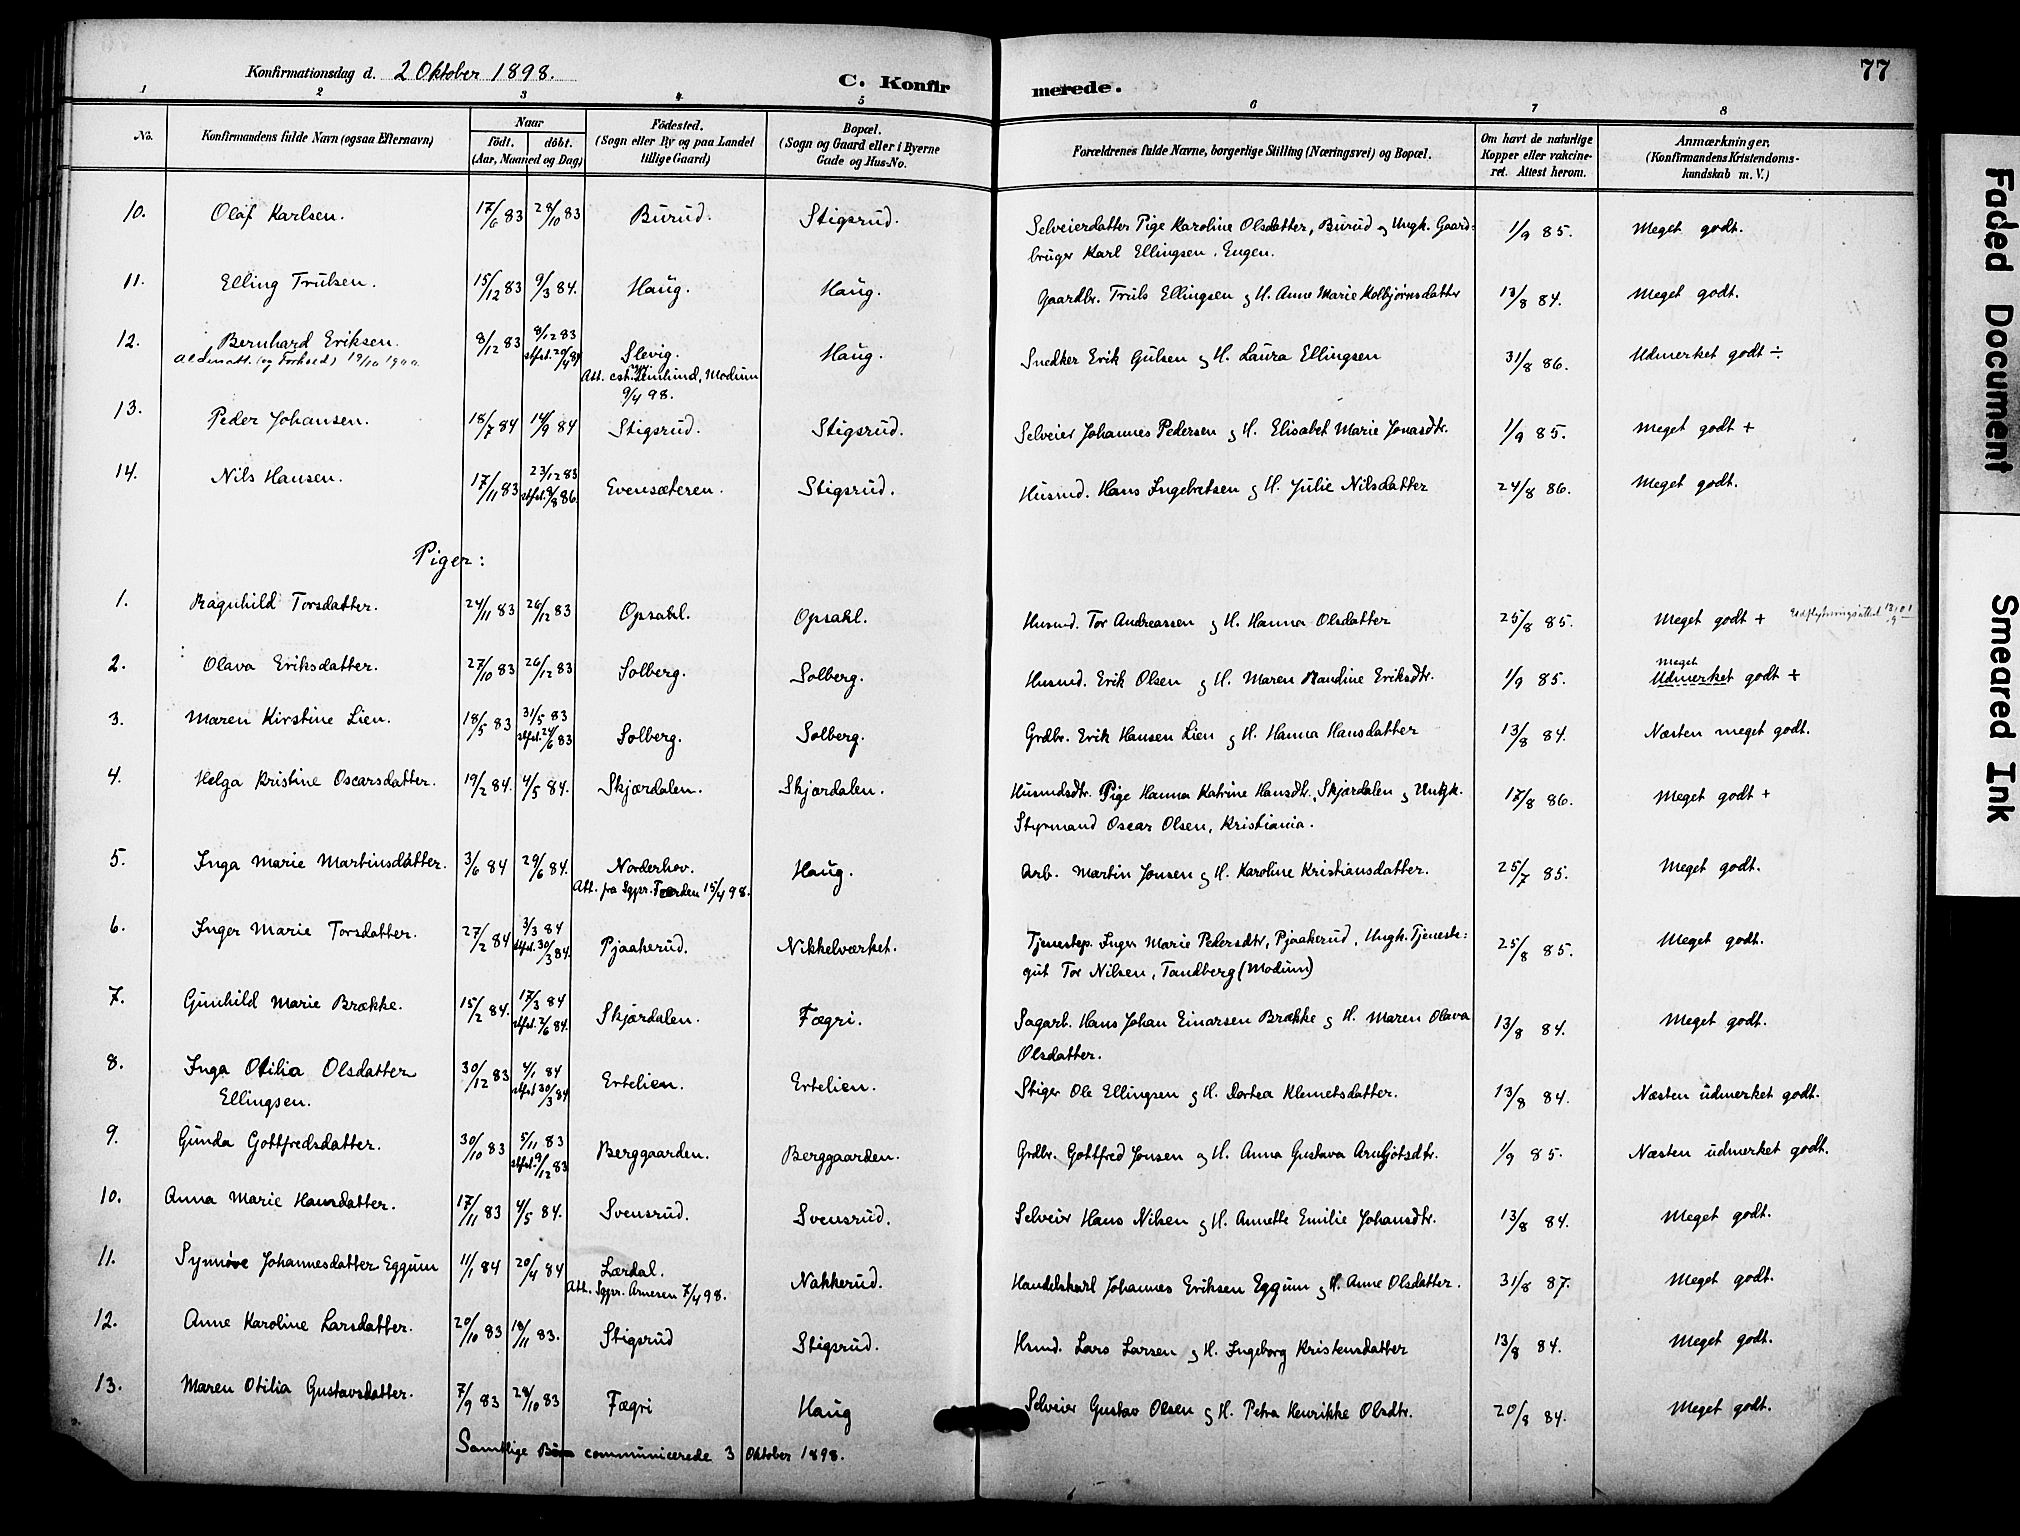 Konfirmationsdag d. 2 Oktober 1898.
C. Konfir
merede.
77
1 2 3 4 5 6 7 8
No.
Konfirmandens fulde Navn (ogsaa Efternavn)
Naar
født. døbt.
(Aar, Maaned og Dag)
Fødested.
(Sogn eller By og paa Landet
tillige Gaard)
Bopæl.
(Sogn og Gaard eller i Byerne
Gade og Hus-No.
Forældrenes fulde Navne, borgerlige Stilling (Næringsvei) og Bopæl.
Om havt de naturlige
Kopper eller vakcine-
ret. Attest herom.
Anmærkninger.
(Konfirmandens Kristendoms-
kundskab m. V.)
10. Olaf Karlsen. 17/6 83 28/10 83 Burud. Stigsrud. Selveierdatter Pige Karoline Olsdatter, Burud og Ungk. Gaard- 1/9 85. Meget godt.
bruger Karl Ellingsen, Engen.
11. Elling Trulsen. 15/12 83 9/3 84. Haug. Haug. Gaardbr. Truls Ellingsen og H. Anne Marie Kolbjørnsdatter 13/8 84. Meget godt.
12. Bernhard Eriksen. 8/12 83 8/12 83 Slevig. Haug. Snedker Erik Gulsen og H. Laura Ellingsen 31/8 86. Udmerket godt ÷
stfst. 20/4 84
Att. Modum
9/4 98.
13. Peder Johansen. 18/7 84 14/9 84 Stigsrud. Stigsrud. Selveier Johannes Pedersen og H. Elisabet Marie Jonasdtr. 1/9 85. Meget godt +
14. Nils Hansen. 17/11 83 23/12 83 Evensæteren. Stigsrud. Husmd. Hans Ingebretsen og H. Julie Nilsdatter 24/8 86. Meget godt.
stfst. 8/8 86.
Piger:
1. Ragnhild Torsdatter. 24/11 83 26/12 83 Opsahl. Opsahl. Husmd. Tor Andreassen og H. Hanna Olsdatter 25/8 85. Meget godt + Udflytningsattest
2. Olava Eriksdatter. 27/10 83 26/12 83 Solberg. Solberg. Husmd. Erik Olsen og H. Maren Randine Eriksdtr. 1/9 85. Meget
Udmerket godt +
3. Maren Kirstine Lien. 18/5 83 31/5 83 Solberg. Solberg. Grdbr. Erik Hansen Lien og H. Hanna Hansdatter 13/8 84. Næsten meget godt.
stfst. 24/6 83
4. Helga Kristine Oscarsdatter. 19/2 84. 4/5 84. Skjærdalen. Skjærdalen. Husmdsdtr. Pige Hanna Katrine Hansdtr., Skjærdalen og Ungk. 17/8 86. Meget godt +
Styrmand Oscar Olsen, Kristiania.
5. Inga Marie Martinsdatter. 3/6 84 29/6 84. Norderhov. Haug. Arb. Martin Jonsen og H. Karoline Kristiansdatter. 25/7 85. Meget godt.
Att. fra Sgpr. 15/4 98.
6. Inger Marie Torsdatter. 27/2 84 3/3 84 Pjaakerud. Nikkelværket. Tjenestep. Inger Marie Pedersdtr, Pjaakerud, Ungk. Tjeneste- 25/8 85. Meget godt.
stfst. 30/3 84. gut Tor Nilsen, Tandberg (Modum)
7. Gunhild Marie Brække. 15/2 84. 17/3 84 Skjærdalen. Fægri. Sagarb. Hans Johan Einarsen Brække og H. Maren Olava 13/8 84. Meget godt.
stfst. 2/6 84. Olsdatter.
8. Inga Otilia Olsdatter 30/12 83 4/1 84 Ertelien. Ertelien. Stiger Ole Ellingsen og H. Dortea Klemetsdatter. 13/8 84. Næsten udmerket godt.
Ellingsen. stfst. 30/3 84
9. Gunda Gottfredsdatter. 30/10 83 5/11 83 Berggaarden. Berggaarden. Grdbr. Gottfred Jonsen og H. Anna Gustava Arngjotsdtr. 1/9 85. Næsten udmerket godt.
stfst. 9/12 83
10. Anna Marie Hansdatter. 17/11 83 4/5 84. Svensrud. Svensrud. Selveier Hans Nilsen og H. Annette Emilie Johansdtr. 13/8 84. Meget godt.
11. Synnøve Johannesdatter Eggum 11/1 84 20/4 84 Lærdal. Nakkerud. Handelskarl Johannes Eriksen Eggum og H. Anne Olsdatter. 31/8 87. Meget godt.
Att. Sgpr. Arnesen 7/4 98.
12. Anne Karoline Larsdatter. 20/10 83 18/11 83. Stigsrud Stigsrud. Hsmd. Lars Larsen og H. Ingeborg Kristensdatter 13/8 84. Meget godt.
13. Maren Otilia Gustavsdatter. 7/9 83 28/10 83 Fægri Haug Selveier Gustav Olsen og H. Petra Henrikke Olsdtr. 20/8 84. Meget godt.
Samtlige communicerede 3 Oktober 1898.
Faded Document
Smeared Ink